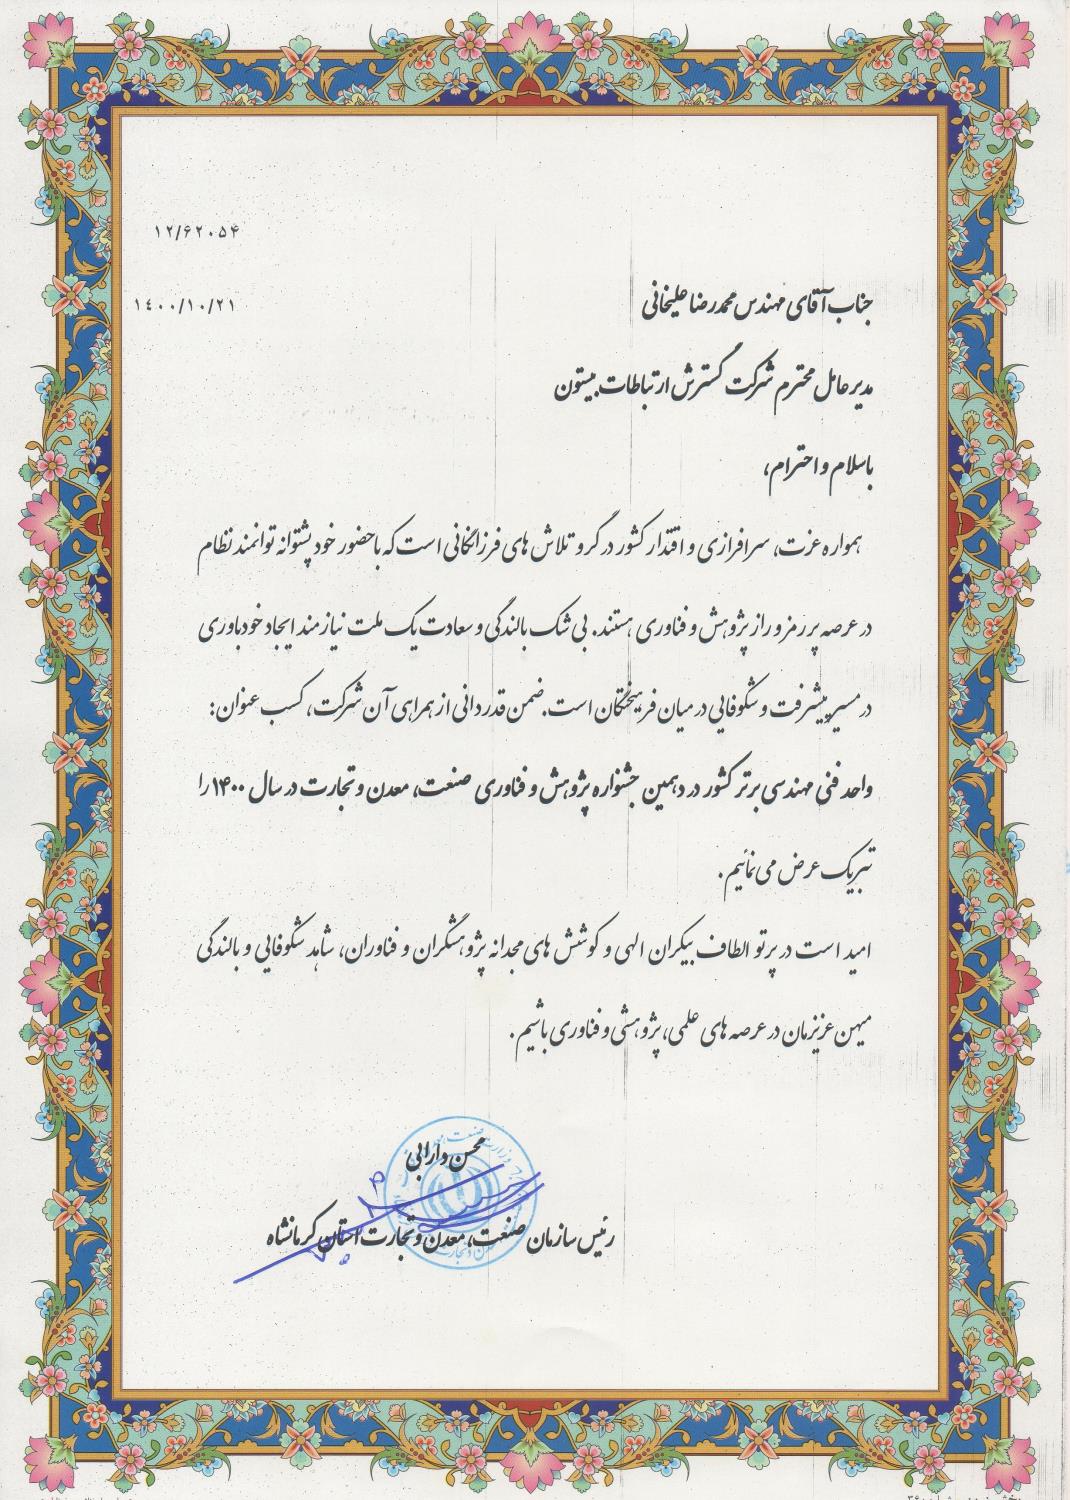 ۱۲/۶۲۰۵۴
۱٤۰۰/۱۰/۲۱
جناب آقای مهندس محمدرضا علیخانی
مدیرعامل محترم شرکت گسترش ارتباطات بیستون
باسلام و احترام،
همواره عزت، سرافرازی و اقتدار کشور در گرو تلاش های فرزانگانی است که با حضور خود پشتوانه توانمند نظام
در عرصه پر رمز و راز پژوهش و فناوری هستند. بی شک بالندگی و سعادت یک ملت نیازمند ایجاد خودباوری
در مسیر پیشرفت و شکوفایی در میان فرهیختگان است. ضمن قدردانی از همراهی آن شرکت، کسب عنوان:
واحد فنی مهندسی برتر کشور در دهمین جشنواره پژوهش و فناوری صنعت، معدن و تجارت در سال ۱۴۰۰ را
تبریک عرض می نمائیم.
امید است در پرتو الطاف بیکران الهی و کوشش های مجدانه پژوهشگران و فناوران، شاهد شکوفایی و بالندگی
میهن عزیزمان در عرصه های علمی، پژوهشی و فناوری باشیم.
محسن دارابی
رئیس سازمان صنعت، معدن و تجارت استان کرمانشاه